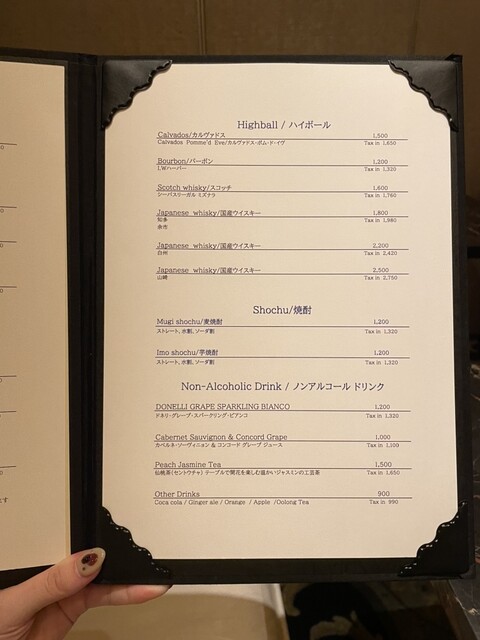 Highball / ハイボール
Calvados/カルヴァドス 1,500
Calvados Pomme'd Eve/カルヴァドス・ポム・ド・イヴ Tax in 1,650
Bourbon/バーボン 1,200
I.Wハーパー Tax in 1,320
Scotch whisky/スコッチ 1,600
シーバスリーガル ミズナラ Tax in 1,760
Japanese whisky/国産ウイスキー 1,800
知多 Tax in 1,980
余市
Japanese whisky/国産ウイスキー 2,200
白州 Tax in 2,420
Japanese whisky/国産ウイスキー 2,500
山崎 Tax in 2,750
Shochu/焼酎
Mugi shochu/麦焼酎 1,200
ストレート、水割、ソーダ割 Tax in 1,320
Imo shochu/芋焼酎 1,200
ストレート、水割、ソーダ割 Tax in 1,320
Non-Alcoholic Drink / ノンアルコール ドリンク
DONELLI GRAPE SPARKLING BIANCO 1,200
ドネリ・グレープ・スパークリング・ビアンコ Tax in 1,320
Cabernet Sauvignon & Concord Grape 1,000
カベルネ・ソーヴィニョン & コンコード グレープ ジュース Tax in 1,100
Peach Jasmine Tea 1,500
仙桃茶(セントウチャ) テーブルで開花を楽しむ温かいジャスミンの工芸茶 Tax in 1,650
Other Drinks 900
Coca cola / Ginger ale / Orange / Apple /Oolong Tea Tax in 990